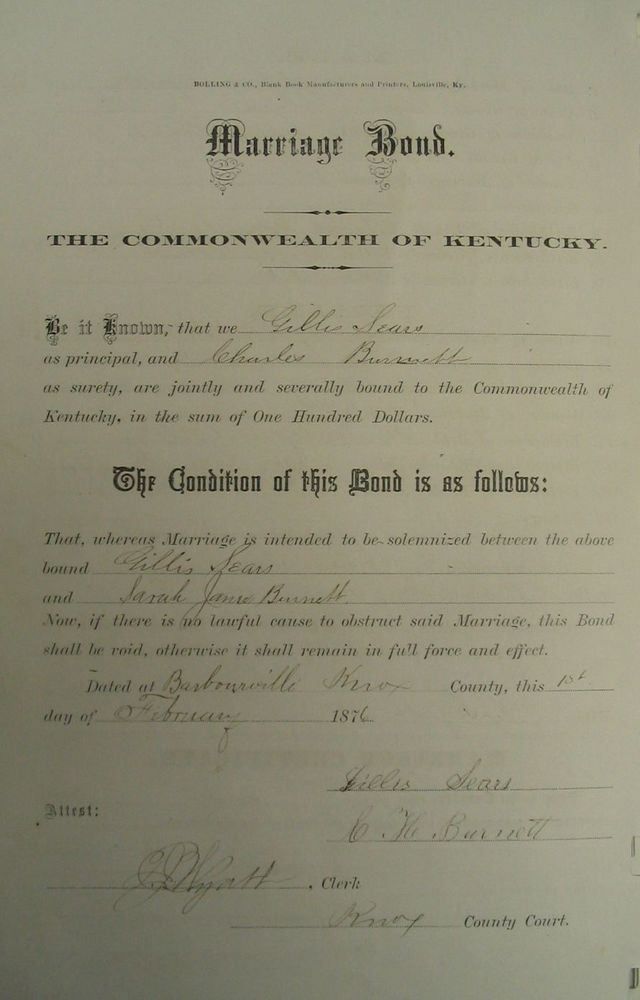 BOLLING & CO., Blank Book Manufacturers and Printers, Louisville, Ky.
Marriage Bond.
THE COMMONWEALTH OF KENTUCKY.
Be it Known, that we Gillis Sears
as principal, and Charles Burnett
as surety, are jointly and severally bound to the Commonwealth of
Kentucky, in the sum of One Hundred Dollars.
The Condition of this Bond is as follows:
That, whereas Marriage is intended to be solemnized between the above
bound Gillis Sears
and Sarah Jane Burnett
Now, if there is no lawful cause to obstruct said Marriage, this Bond
shall be void, otherwise it shall remain in full force and effect.
Dated at Barbourville Knox County, this 1st
day of February 1876
Gillis Sears
Attest:
C H Burnett
Wyatt, Clerk
Knox County Court.